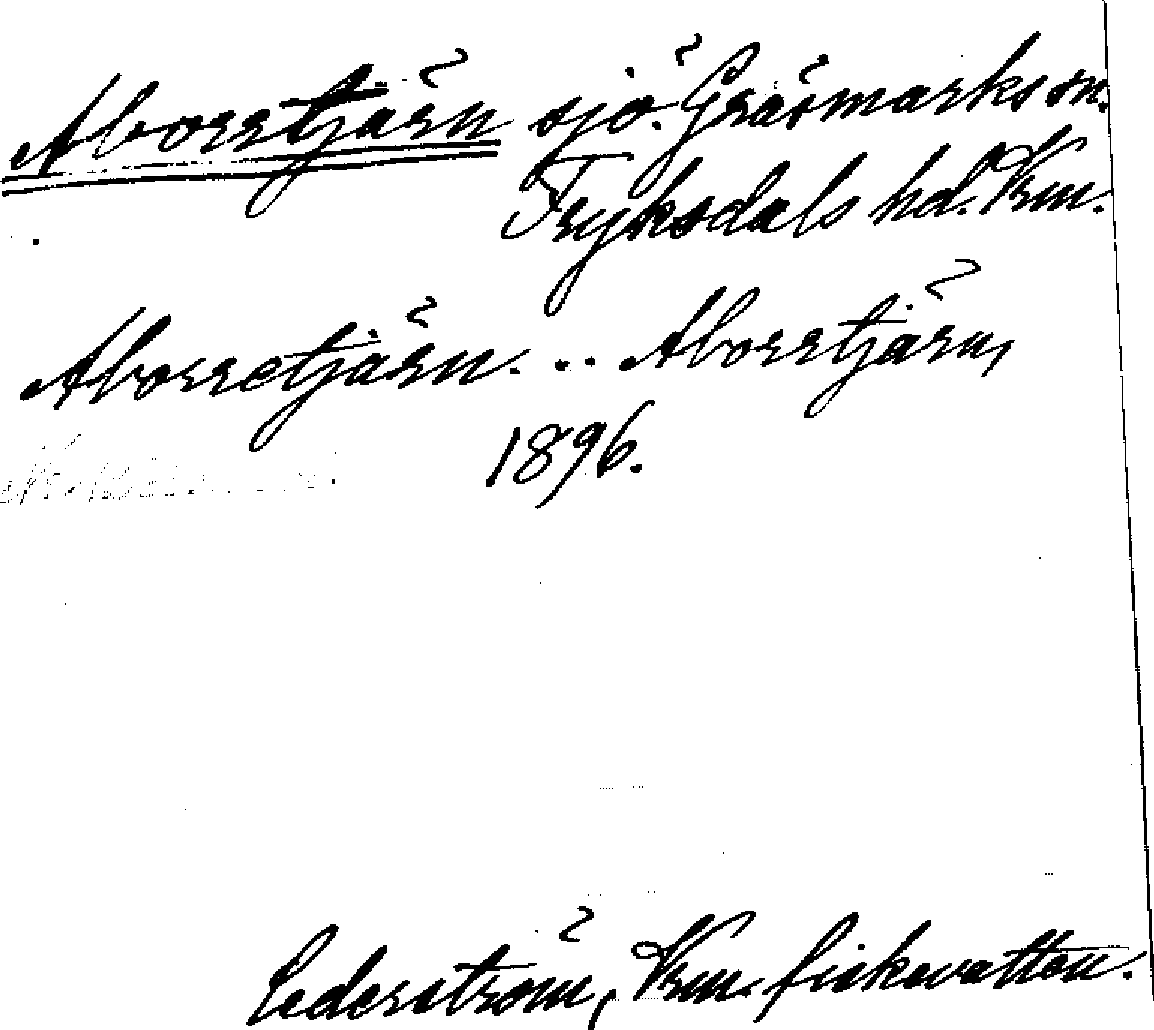 Aborrtjärn sjö. Gräsmarks sn.
Fryksdals hd. Vrm.
Aborretjärn. .. Aborrtjärn,
1896.
Cederström, Vrm. fiskevatten.